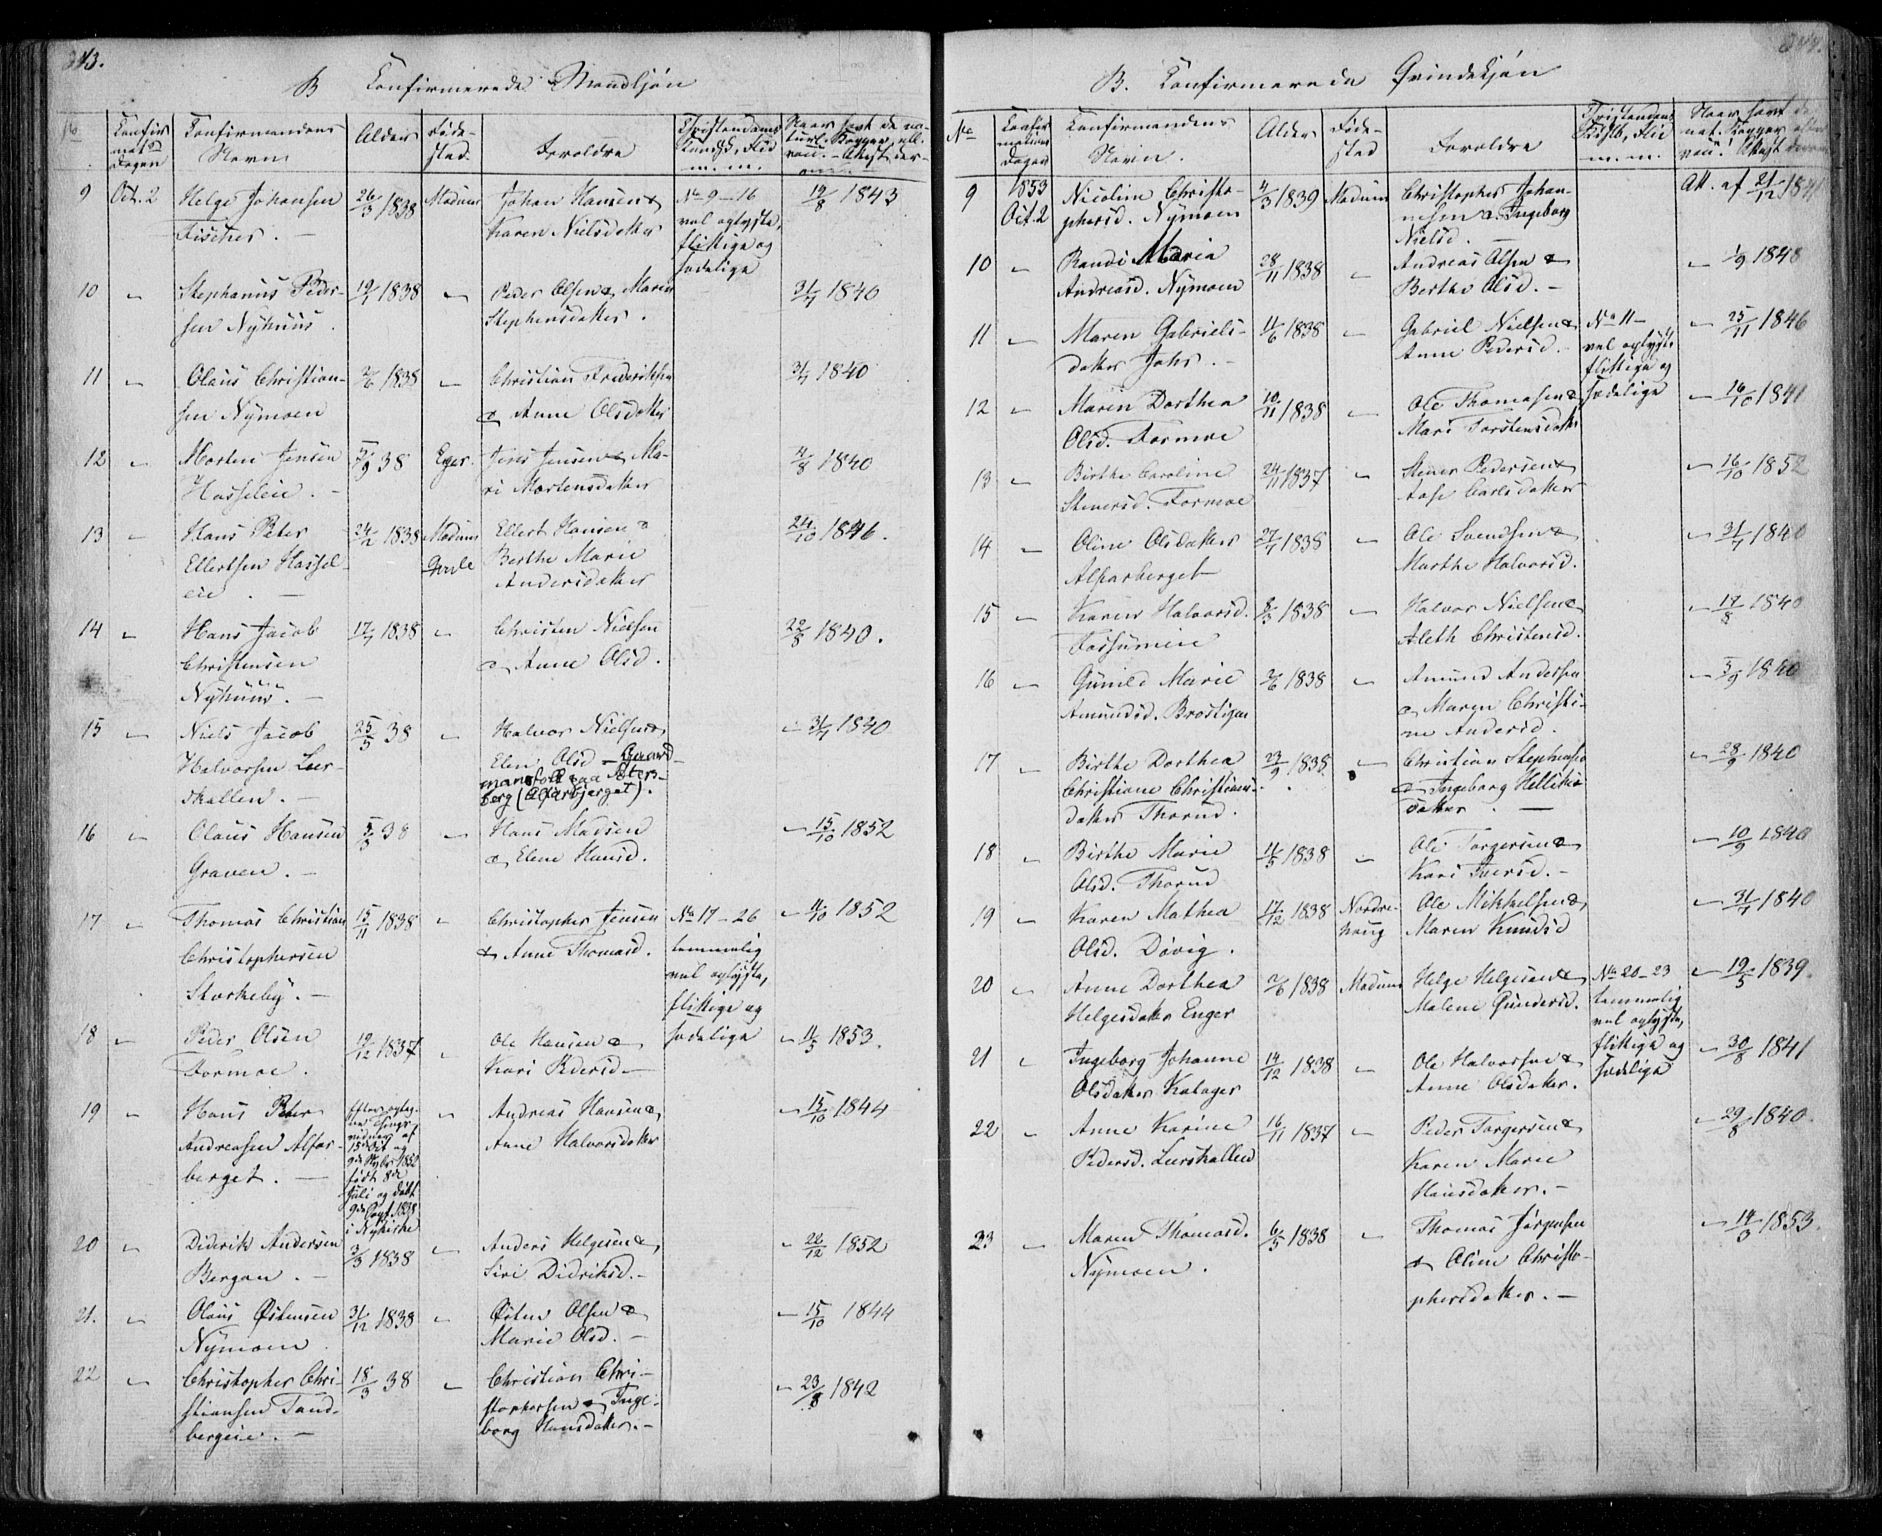 343.
B Confirmerede Mandkjøn
Confirmat. Dagen
Confirmandens Navn
Alder
Fødested
Foroldre
9 Oct. 2 Helge Johansen 26/3 1838 Modum Johan Hansen & No 9-16 19/8 1843
Fischer. — Karen Nielsdatter vel oplyste,
flittige og
sædelige
10 " Stephanus Peder- 1838 " Peder Olsen & Maren 31/7 1840
sen Nyhuus. Stephensdatter.
11 " Olaus Christian- 2/6 1838 " Christian Frederiksen 31/7 1840
sen Nymoen & Anne Olsdatter
12 " Morten Jensen 5/9 38 Eger. Jens Jensen & Ma- 4/8 1840
Hasseleie. — ri Mortensdatter
13 " Hans Peter 24/2 1838 Modum Ellert Hansen & 24/10 1846.
Ellertsen Hassel- Berthe Marie
eie. — Andersdatter
14 " Hans Jacob 17/7 1838 " Christen Nielsen 22/8 1840.
Christensen & Anne Olsd.
Nyhuus. —
15 " Niels Jacob 25/5 38 " Halvor Nielsen & " 31/7 1840
Halvorsen Leer- Elen Olsd — Gaard-
skallen. — mansfolk paa
berg (Alfarbjerget).
16 " Olaus Hansen 5/3 38 " Hans Madsen " 15/10 1852
Graven. — & Elene Hansd.
17 " Thomas Christian 15/11 1838 " Christopher Jensen No 17-26 " 11/10 1852
Christophersen & Anne Thomasd. temmelig
Storkeby. — vel oplyste,
flittige og
18 " Peder Olsen 19/12 1837 " Ole Hansen & sædelige " 11/3 1853.
Formoe. Kari Pedersd —
19 " Hans Peter " Andreas Hansen & " 15/10 1844
Andreasen Alfar- Anne Halvorsdatter
berget. —
født 8de
Juli og døbt
9de Sept. 1838
i Nykirke
20 " Diderik Andersen 3/3 1838 " Anders Helgesen & " 22/12 1852
Bergan. — Siri Didriksd. —
21. " Olaus Østensen 31/12 1838 " Østen Olsen & " 15/10 1844
Nymoen. Marie Olsd. —
22 " Christopher Chri- 18/3 38 " Christian Chri- " 23/8 1842
stiansen Sand- stophersen & Inge-
bergeie. — borg Hansdatter. —
344.
B. Confirmerede Qvindekjøn
No
Confirmations Dagen
Confirmandens Navn.
Alder
Fødested
Foroldre
9 1853 Nicoline Christo- 4/3 1839 Modum Christopher Johan- Att. af 21/12 1841
Oct. 2 phersd. Nymoen nesen & Ingeborg
Nielsd. —
10 " Randi Maria 28/11 1838 " Andreas Olsen & " 1/9 1840
Andreasd. Nymoen Berthe Olsd. —
11 " Maren Gabriels- 11/6 1838 " Gabriel Nielsen & No 11— " 25/11 1846
datter Anne Pedersd. vel oplyste
flittige og
12 " Maren Dorthea 10/11 1838 " Ole Thomasen & sædelige " 16/10 1841
Olsd. Formoe Mari Torstensdatter
13 " Birthe Caroline 24/11 1837 " Stener Pedersen & " 16/10 1852
Stenersd. Formoe Aase Carlsdatter
14 " Oline Olsdatter 27/7 1838 " Ole Svendsen & " 31/7 1840
Alfarberget Marthe Halvorsd.
15 " Karen Halvorsd. 8/3 1838 " Halvor Nielsen & " 17/8 1840
Fossumeie Aleth Christensd.
16 " Gunild Marie 2/6 1838 " Amund Andersen " 5/9 1840
Amundsd. Brostigen & Maren Christi-
ne Andersd.
17 " Birthe Dorthea 23/9 1838 " Christian Stephensen " 28/9 1840
Christiane Christians- & Ingeborg Helliks-
datter Thorud. datter. —
18 " Birthe Marie 11/5 1838 " Ole Torgersen & " 10/9 1840
Olsd. Thorud Kari Iversd. —
19 " Karen Mathea 17/12 1838 Nordre- Ole Mikkelsen & " 31/7 1840
Olsd. Døvig. houg Maren Knudsd
20 " Anne Dorthea 2/6 1838 Modum Helge Helgesen & No 20-23 " 19/5 1839.
Helgesdatter Enger Malene Gundersd. temmelig
vel oplyste,
21 " Ingeborg Johanne 14/12 1838 " Ole Halvorsen & flittige og " 30/8 1841
Olsdatter Kalager Anne Olsdatter. sædelige
22 " Anne Karine 16/11 1837 " Peder Torgersen & " 29/8 1840.
Pedersd. Leerskallen Karen Marie
Hansdatter. —
23 " Maren Thomasd. 6/5 1838 " Thomas Jørgensen " 14/3 1853.
Nymoen. & Oline Christo-
phersdatter. —